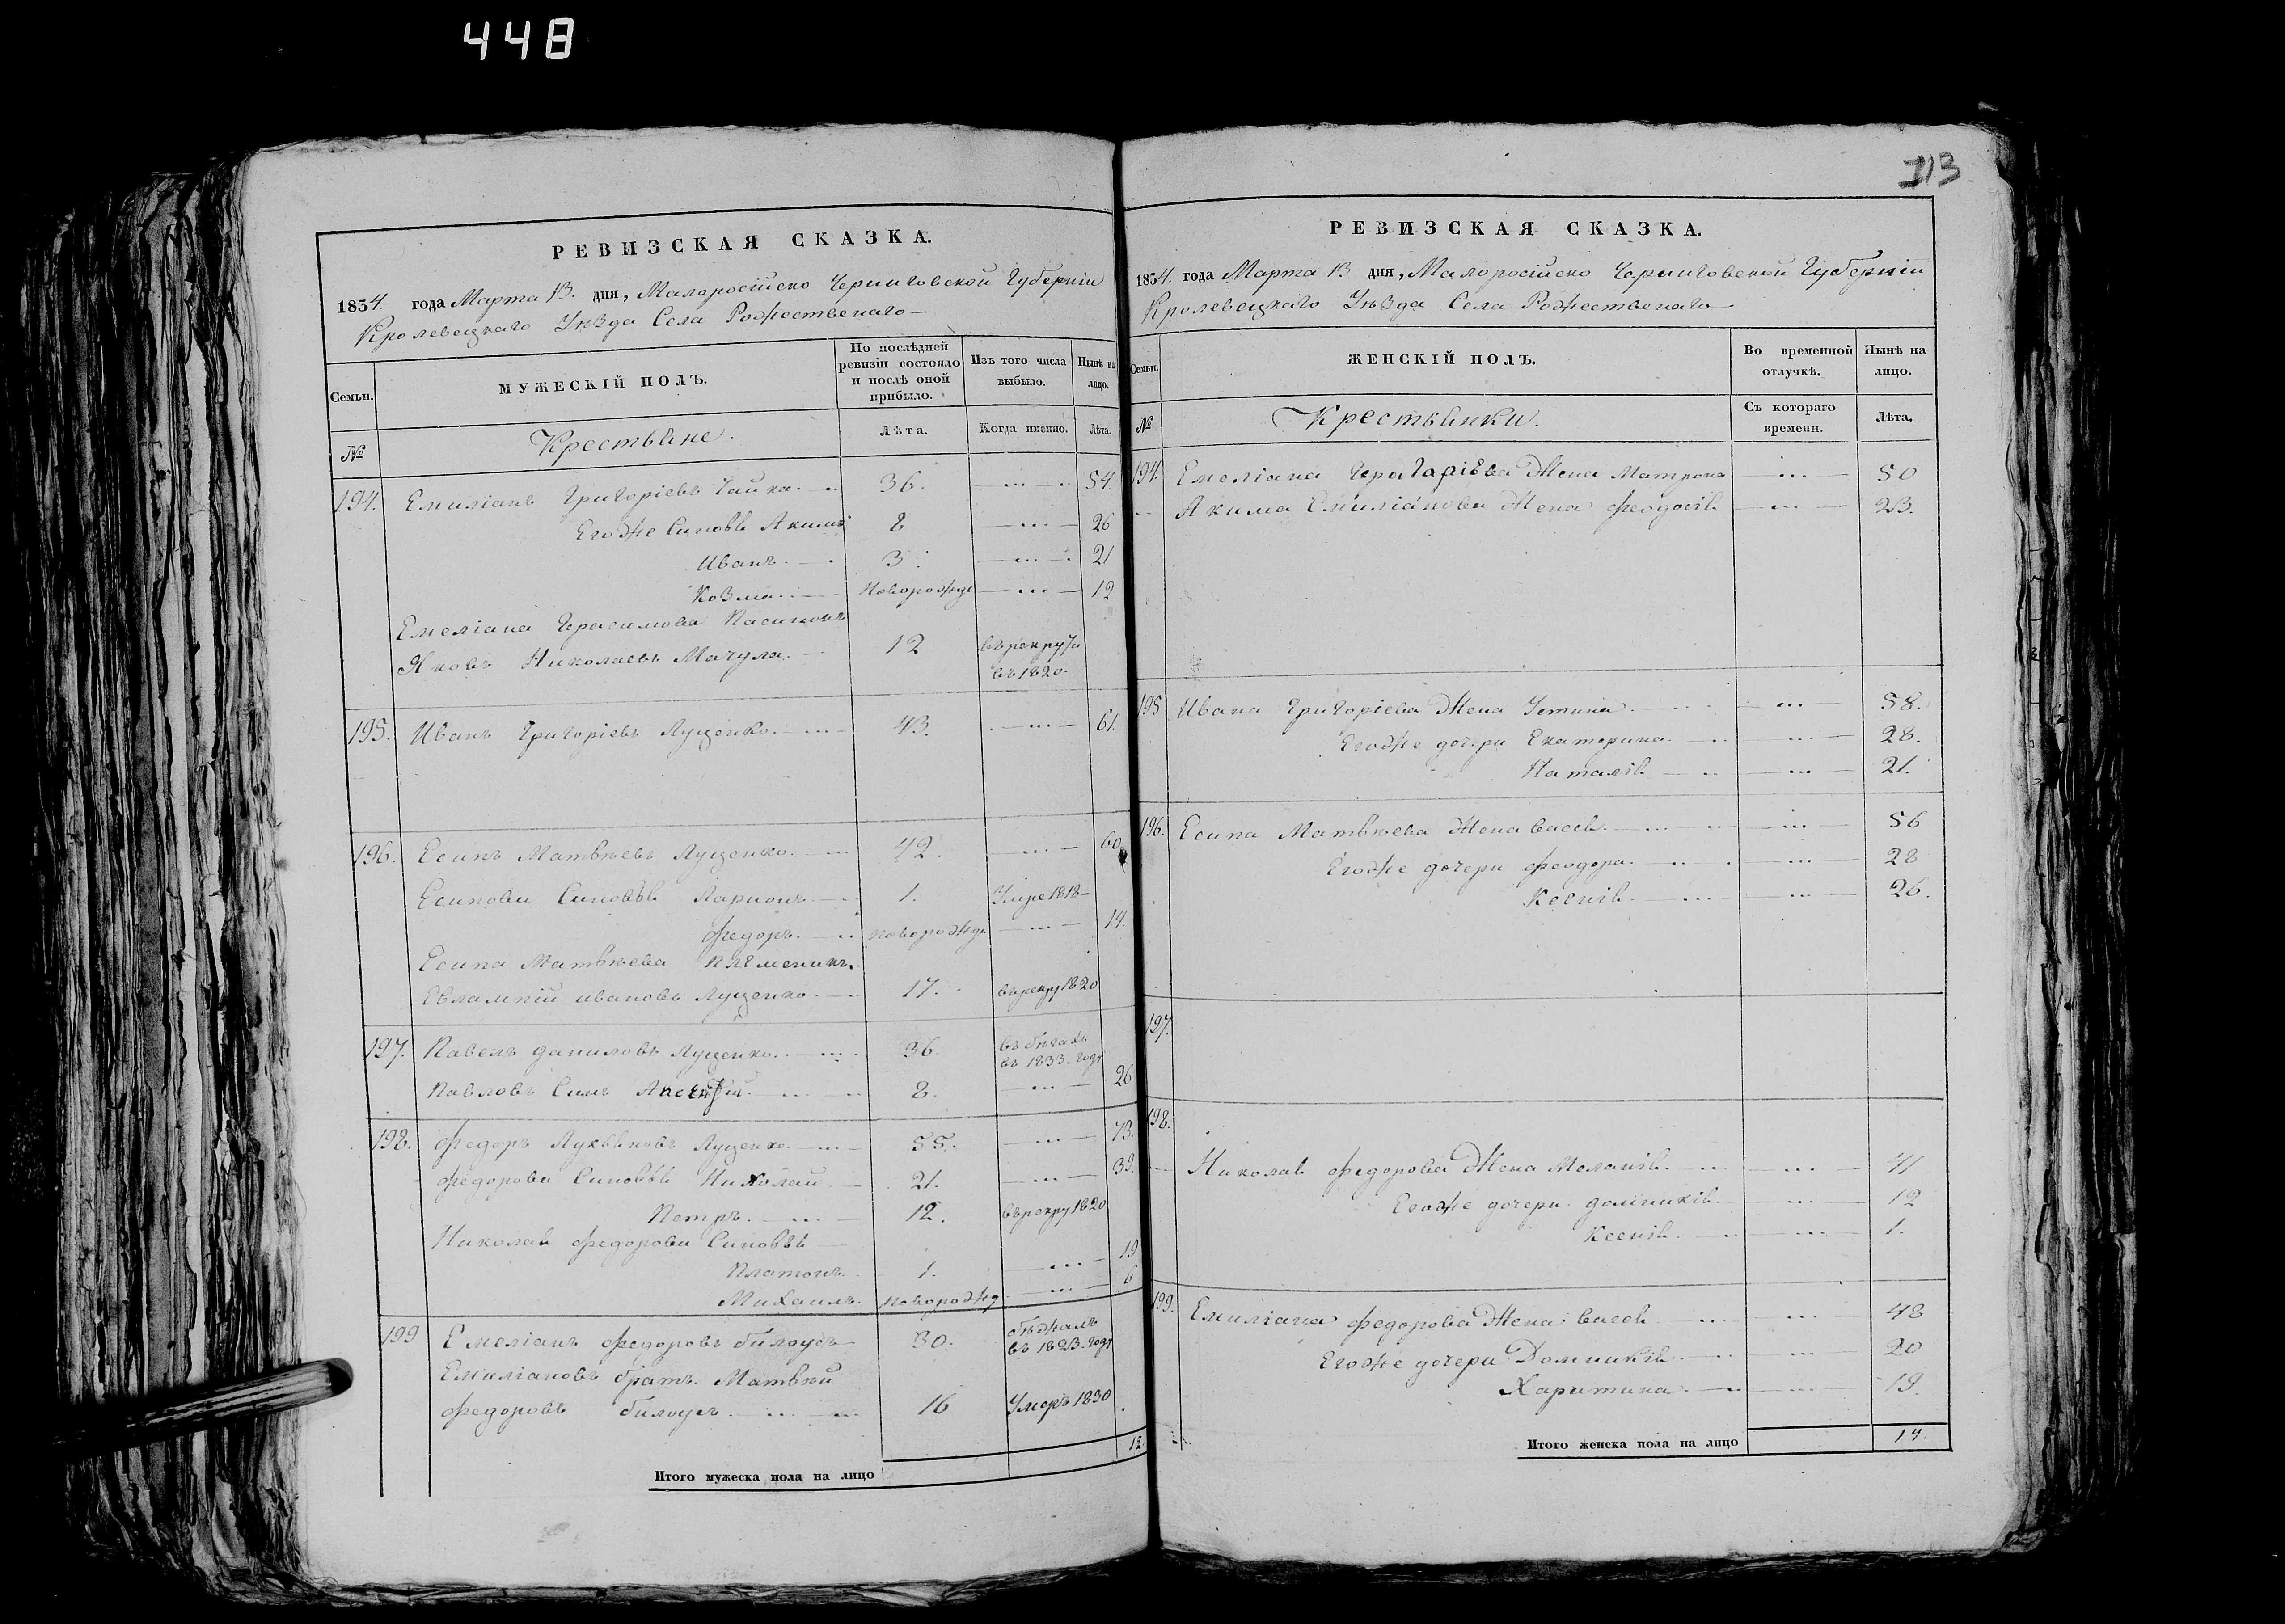 448
РЕВИЗСКАЯ СКАЗКА.
1834. года Марта 13. дня, Малоросійско Черниговской Губерніи
Кролевецкаго Уѣзда Села Рожественаго
Семьи.
МУЖЕСКІЙ ПОЛЪ.
По послѣдней ревизіи состояло и послѣ оной прибыло.
Изъ того числа выбыло.
Нынѣ на лицо.
№
Крестьяне.
Лѣта.
Когда именно.
Лѣта.
194. Емиліанъ Григоріевъ Чайка 36. 54.
Егоже Синовья Акимъ 8 26
Иванъ 3. 21
Козма Новорожде 12
Емеліана Герасимова Пасинокъ
Яковъ Николаевъ Мачула 12 въ рекруты
въ 1820.
195. Иванъ Григоріевъ Луценко 43. 61.
196. Есипъ Матвѣевъ Луценко 42. 60
Есипови Синовья Ларионъ 1. Умре 1818
Федоръ новорожде 14.
Есипа Матвѣева племеникъ
Евлампій ивановъ Луценко 17. въ рекру 1820
197. Павелъ даниловъ Луценко 36. въ бѣгахъ
въ 1833. годѣ
Павловъ Синъ 8. 26
198. Федоръ Лукьяновъ Луценко 55. 73.
Федорови Синовья Николай 21. 39.
Петръ 12. въ рекру 1820
Николая Федорови Синовья
Платонъ 1. 19
Михаилъ новорожд 6
199 Емеліанъ Федоровъ билоусъ 30. бѣжалъ
въ 1823. годѣ
Емиліановъ братъ Матвѣй
Федоровъ билоусъ 16 Умеръ 1830
Итого мужеска пола на лицо 12.
113
РЕВИЗСКАЯ СКАЗКА.
1834. года Марта 13 дня, Малоросійско Черниговской Губерніи
Кролевецкаго Уѣзда Села Рожественаго
Семьи.
ЖЕНСКІЙ ПОЛЪ.
Во временной отлучкѣ.
Нынѣ на лицо.
№
Крестьянки.
Съ котораго времени.
Лѣта.
194. Емеліана Григоріева Жена Матрона 50
Акима Емиліанова Жена Феодосія 23.
195 Ивана Григоріева Жена Устина 58.
Егоже дочери Екатерина 28.
Наталія 21.
196. Есипа Матвѣева Жена васса 56
Егоже дочери Феодора 28
Ксенія 26.
197.
198.
Николая Федорова Жена Меланія 41
Егоже дочери домникія 12
Ксенія 1.
199. Емиліана Федорова Жена васса 48
Егоже дочери Домникія 20
Харитина 19.
Итого женска пола на лицо 14.